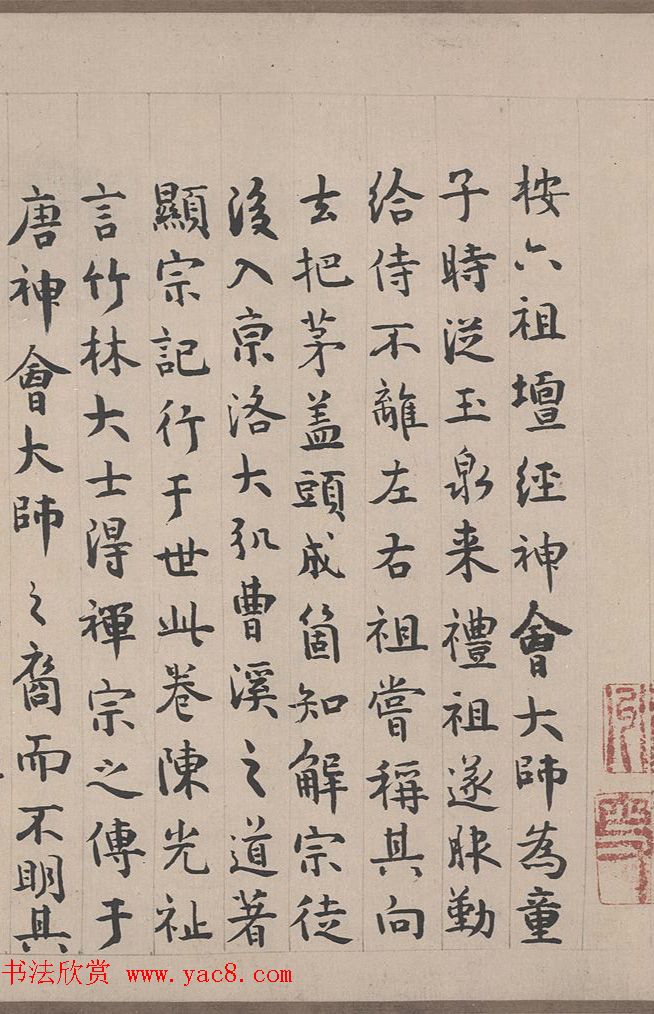 按六祖壇經神會大師為童
子時從玉泉来禮祖遂服勤
給侍不離左右祖嘗稱其向
去把茅蓋頭成箇知解宗徒
後入京洛大弘曹溪之道著
顯宗記行于世此卷陳光祉
言竹林大士得禪宗之傳于
唐神會大師之裔而不明其
书法欣赏 www.yac8.com